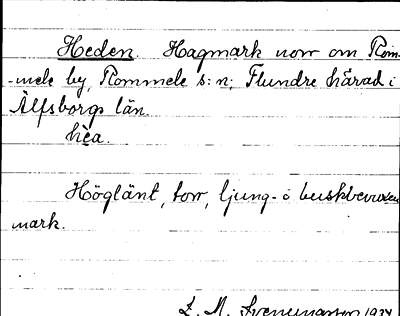 Heden. Hagmark norr om Rom-
-mele by, Rommele s:n; Flundre härad i
Älfsborgs län.
hèa.
Höglänt, torr, ljung- o buskbevuxen
mark.
L. M. Svenungsson 1934